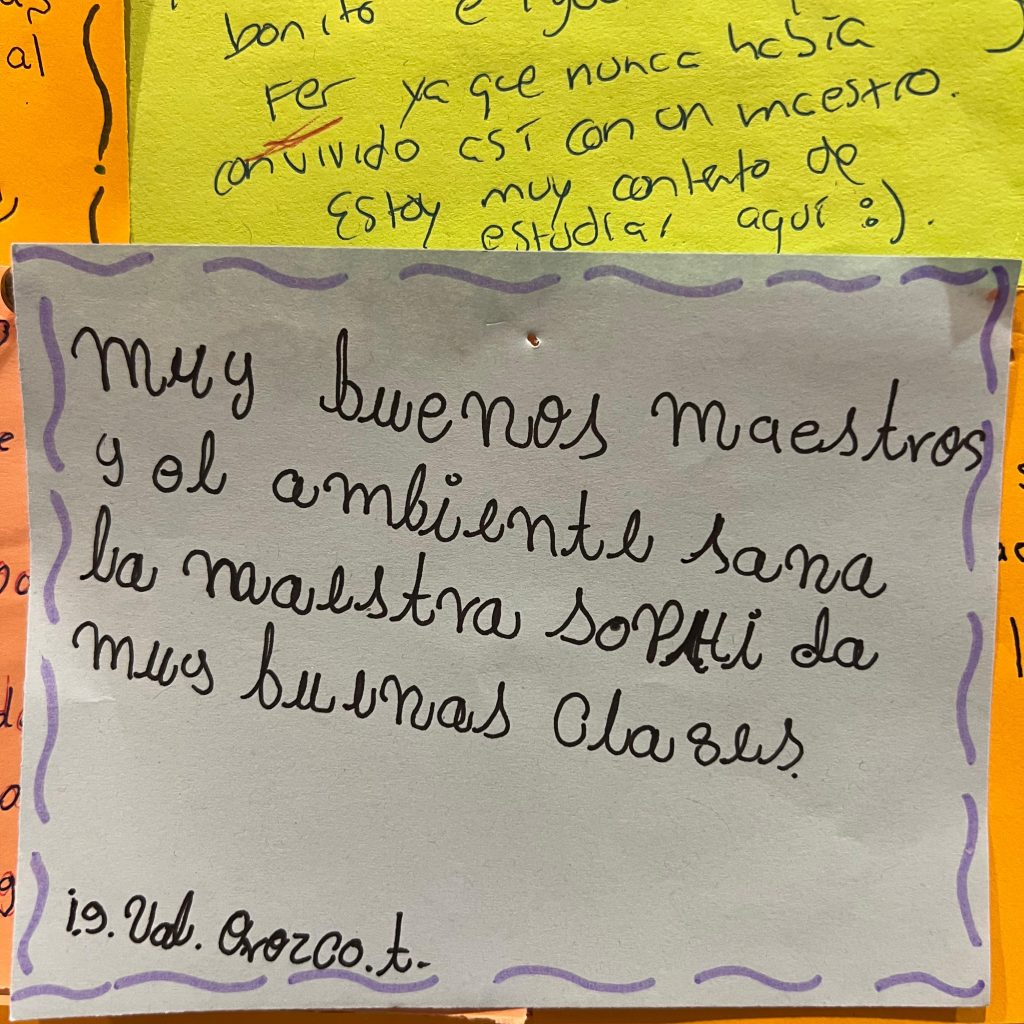 al
bonito e
Fer ya que nunca había
convivido así con un maestro.
Estoy muy contento de
estudiar aquí :).
muy buenos maestros
y el ambiente sana
la maestra SOPHi da
muy buenas Clases.
i.g. Val. Orozco.t.-